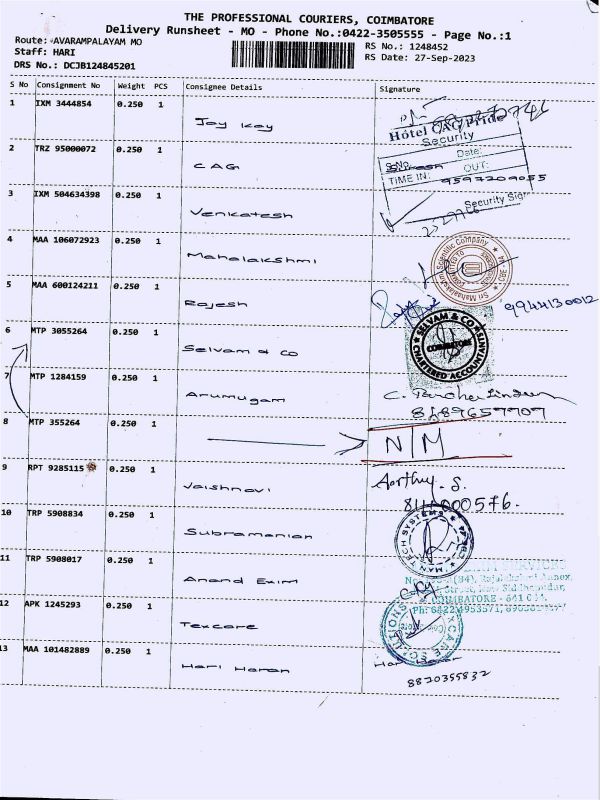 THE PROFESSIONAL COURIERS, COIMBATORE
Delivery Runsheet - MO - Phone No.:0422-3505555 - Page No.:1
Route: AVARAMPALAYAM MO
RS No.: 1248452
Staff: HARI
RS Date: 27-Sep-2023
DRS No.: DCJB124845201
S No Consignment No Weight PCS Consignee Details Signature
1 IXM 3444854 0.250 1 Jay Kay
Hotel CAG Pride
Security
2 TRZ 95000072 0.250 1 CAG
Date:
S.No.
OUT:
TIME IN: 9597209055
3 IXM 504634398 0.250 1 Venkatesh
Security Sig
4 MAA 106072923 0.250 1 Mahalakshmi
Scientific Company
5 MAA 600124211 0.250 1 Rajesh
9944130012
6 MTP 3055264 0.250 1 Selvam & Co
SELVAM & CO
COIMBATORE
CHARTERED ACCOUNTANTS
7 MTP 1284159 0.250 1 Arumugam
8 MTP 355264 0.250 1 N/M
9 RPT 9285115 0.250 1 Vaishnavi
Aarthy. S.
10 TRP 5908834 0.250 1 Subramanian
MAN TECH SYSTEMS
11 TRP 5908017 0.250 1 Anand Exim
COIMBATORE - 641 0
12 APK 1245293 0.250 1 Texcare
13 MAA 101482889 0.250 1 Hari Haran
Hari Haran
8820355832